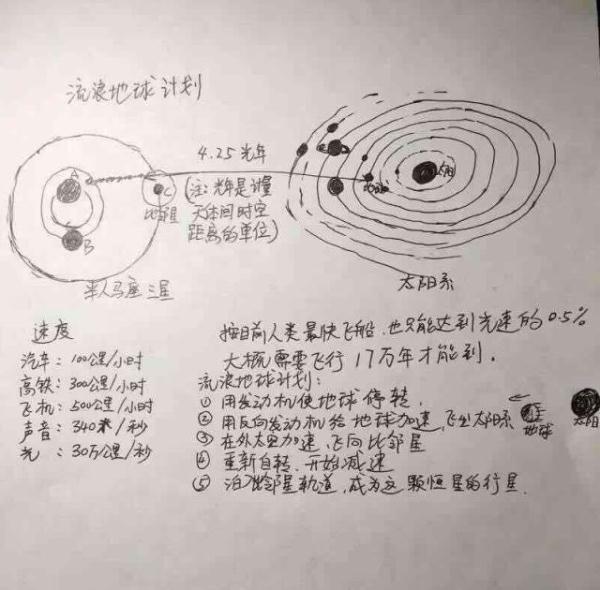 流浪地球计划
A
B
C
比邻星
4.25光年
(注:光年是计量
天体间时空
距离的单位)
地球
太阳
半人马座三星
太阳系
速度
汽车:100公里/小时
高铁:300公里/小时
飞机:500公里/小时
声音:340米/秒
光:30万公里/秒
按目前人类最快飞船,也只能达到光速的0.5%
大概需要飞行17万年才能到。
流浪地球计划:
① 用发动机使地球停转,
② 用反向发动机给地球加速,飞出太阳系
③ 在外太空加速,飞向比邻星
④ 重新自转,开始减速
⑤ 泊入比邻星轨道,成为这颗恒星的行星.
地球
太阳